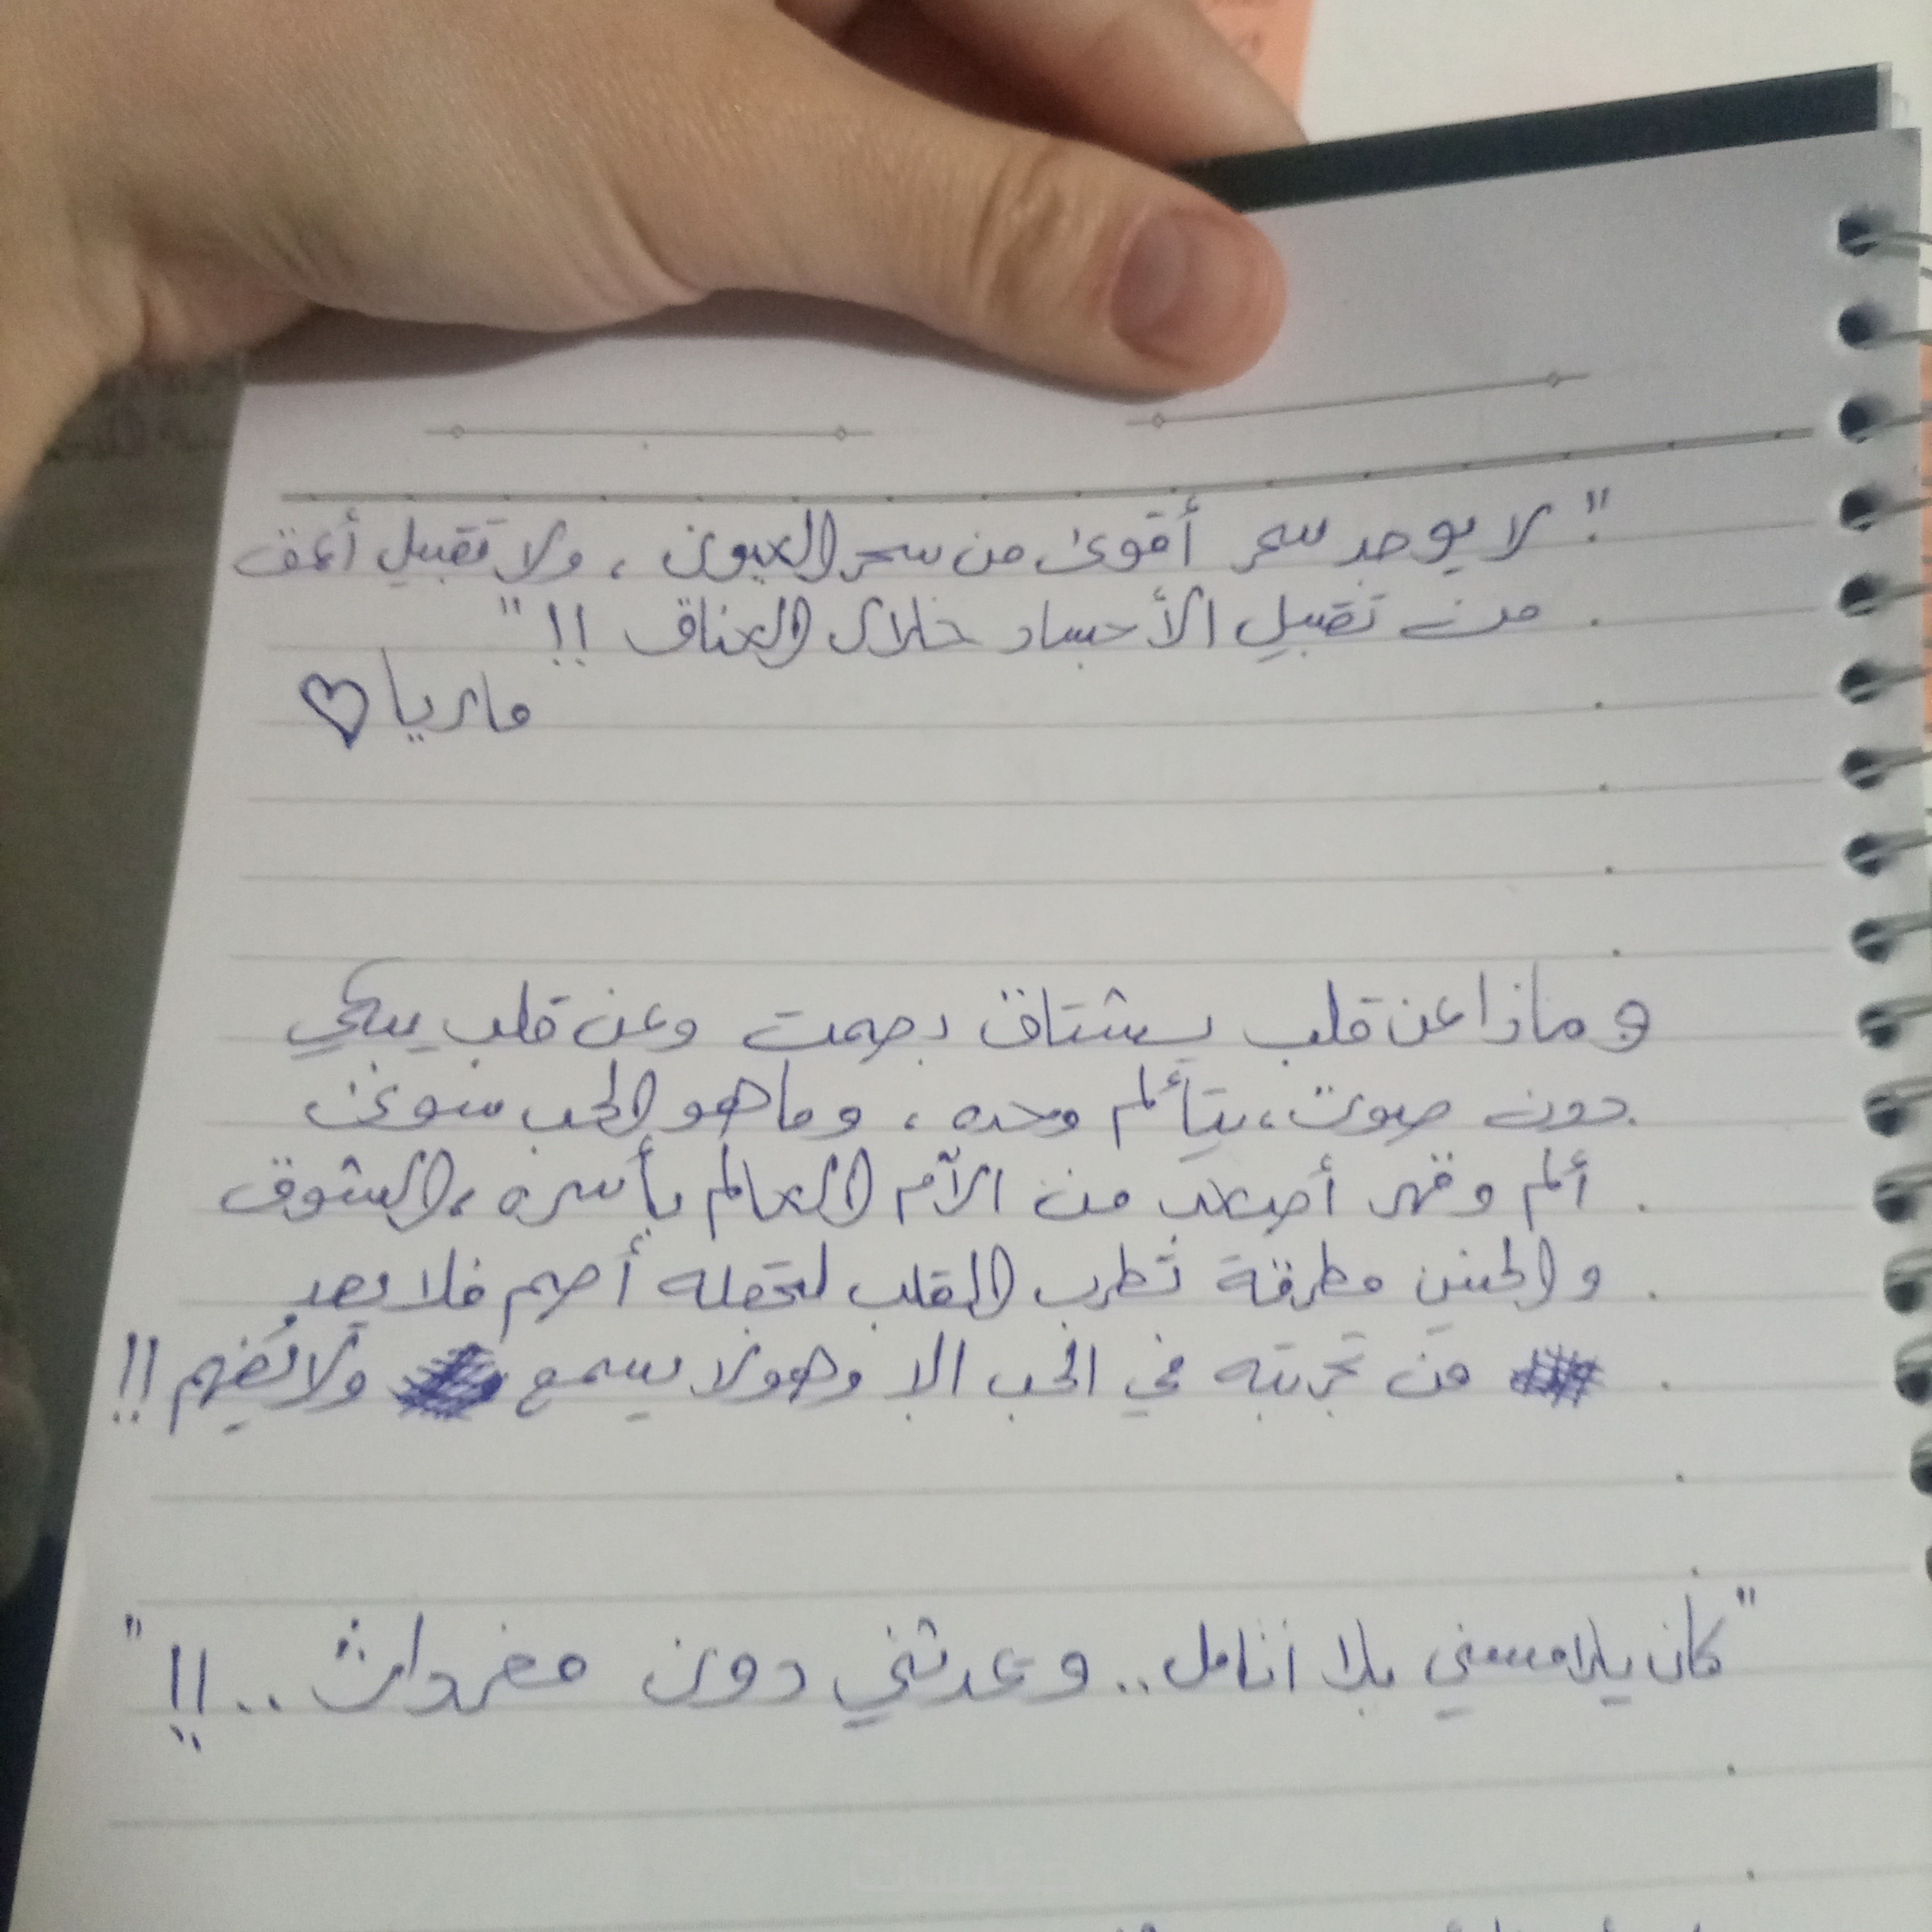 "لا يوجد سحر أقوى من سحر العيون، ولا تقبيل أعمق
من تقبيل الأجساد خلال العناق !!"
ماريا ♡
وماذا عن قلب يشتاق بصمت وعن قلب يبكي
دون صوت، يتألم وحده، وما هو الحب سوى
ألم وقهر أصعب من الآم العالم بأسره، الشوق
والحنين مطرقة تطرب القلب لتجعله أصم فلا يعد
من تجربته في الحب الا وهو لا يسمع ولا يفهم !!
"كان يلامسني بلا أنامل.. وعدثني دون مفرداث..!!"